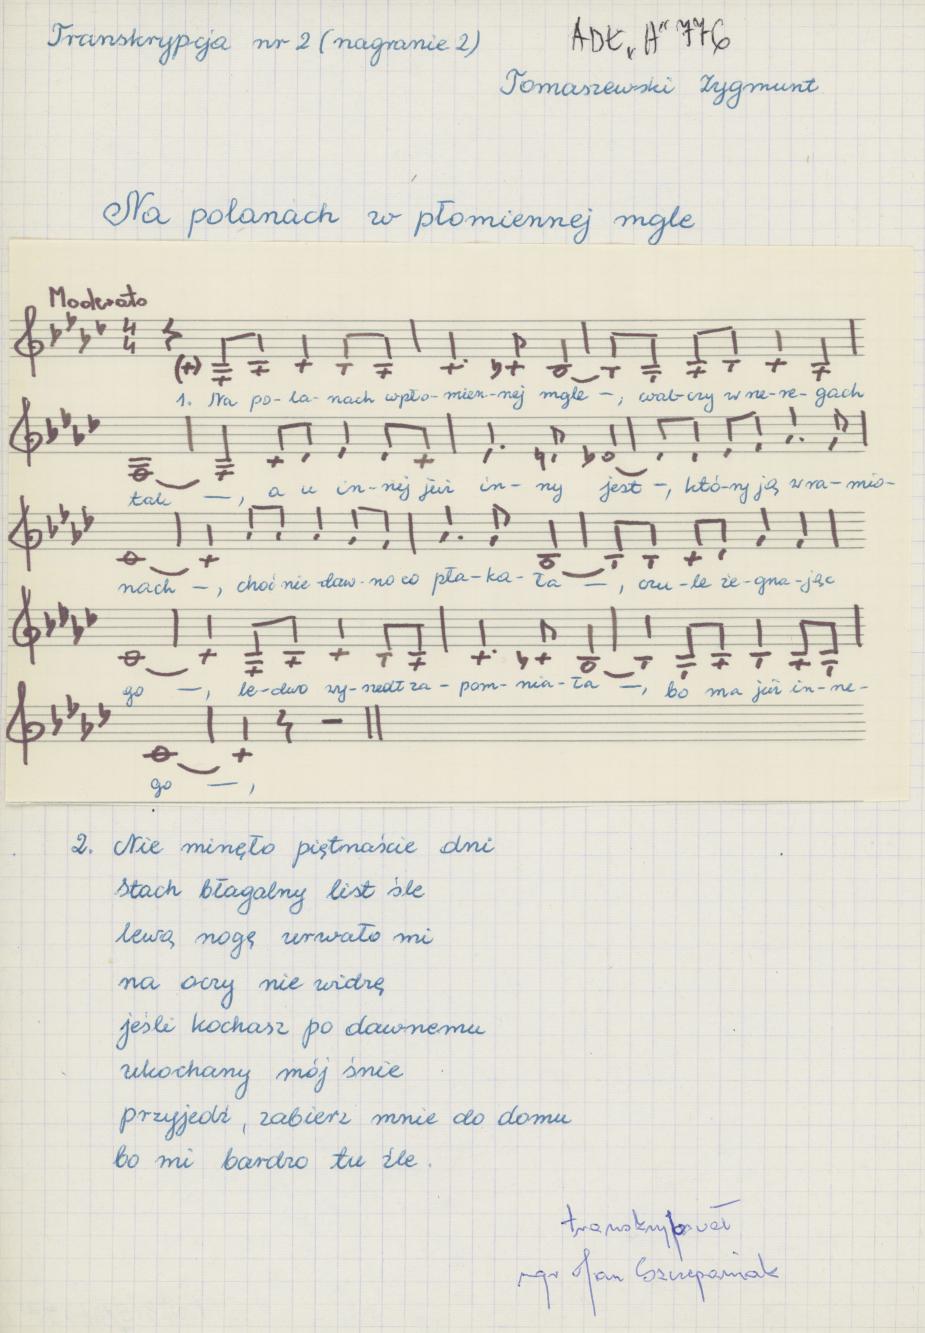 Transkrypcja nr 2 (nagranie 2)
ADŁ "A" 776
Tomaszewski Zygmunt
Na polanach w płomiennej mgle
Moderato
1. Na po-la-nach wpło-mien-nej mgle –, wal-czy w sze-re-gach
tak –, a u in-nej już in-ny jest –, któ-ry ją w ra-mio-
nach –, choć nie daw-no co pła-ka-ła –, czu-le że-gna-jąc
go –, le-dwo wy-szedł za-pom-nia-ła –, bo ma już in-ne-
go –,
2. Nie minęło piętnaście dni
Stach błagalny list śle
lewą nogę urwało mi
na oczy nie widzę
jeśli kochasz po dawnemu
ukochany mój śnie
przyjedź, zabierz mnie do domu
bo mi bardzo tu źle.
transkrybował
mgr Jan Szczepaniak